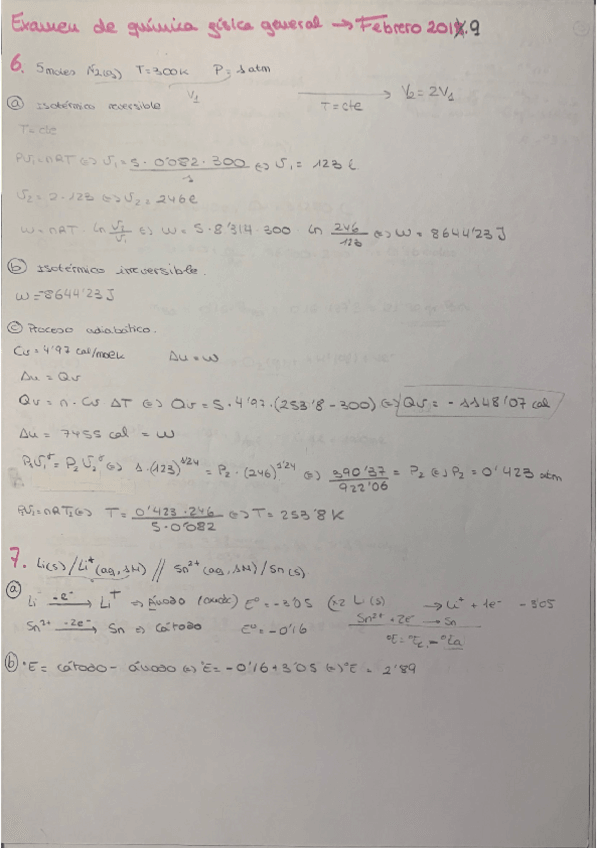 Examen de química física general → Febrero 2018.9
6. 5 moles N2(g) T=300K P=1atm
V1 → V2=2V1
T=cte
ⓐ Isotérmico reversible
T=cte
PV1=nRT ⇔ V1 = 5·0'082·300 / 1 ⇔ V1 = 123 l
V2=2·123 ⇔ V2=246l
W=nRT · ln V2/V1 ⇔ W= 5·8'314·300 ln 246/123 ⇔ W = 8644'23 J
ⓑ Isotérmico irreversible.
W=8644'23 J
ⓒ Proceso adiabático.
Cv=4'97 cal/molK Δu=W
Δu = Qv
Qv = n·Cv ΔT ⇔ Qv=5·4'97·(253'8-300) ⇔ Qv= -1148'07 cal
Δu= 7455 cal = W
P1V1^γ = P2V2^γ ⇔ 1·(123)^1'24 = P2·(246)^1'24 ⇔ 390'37/922'06 = P2 ⇔ P2=0'423 atm
PV=nRT2 ⇔ T= 0'423·246 / 5·0'082 ⇔ T= 253'8 K
7. Li(s)/Li+(aq,1M) // Sn2+(aq,1M)/Sn(s)
ⓐ Li -e-→ Li+ ⇒ Ánodo E°=-3'05 (x2 Li(s) → Li+ + 1e- -3'05
Sn2+ +2e- → Sn ⇒ Cátodo E°=-0'16 Sn2+ +2e- → Sn
°E=°Ec-°Ea
ⓑ °E= Cátodo - ánodo ⇔ °E=-0'16+3'05 ⇔ °E = 2'89